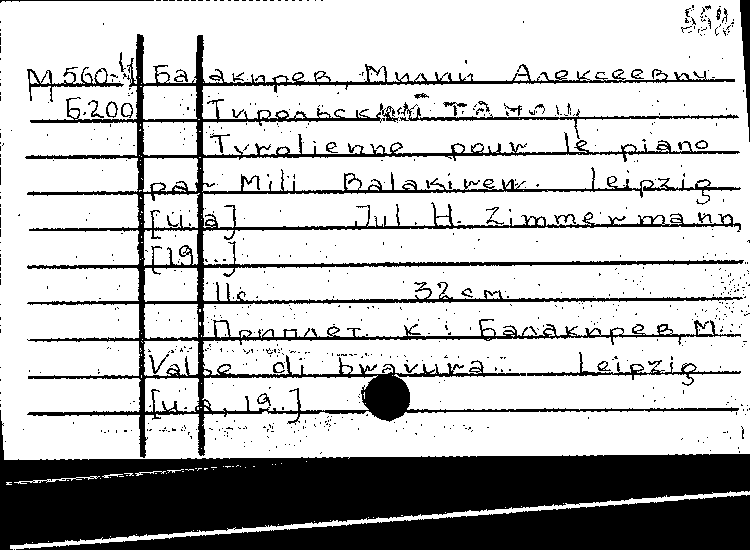 552
М 560-4 Балакирев, Милий Алексеевич
Б.200 Тирольский танец
Tyrolienne pour le piano
par Mili Balakirew. Leipzig
[u. a] Jul. H. Zimmermann,
[19...]
11с. 32 см.
Приплет. к: Балакирев, М.
Valse di bravura... Leipzig
[u. a, 19..]